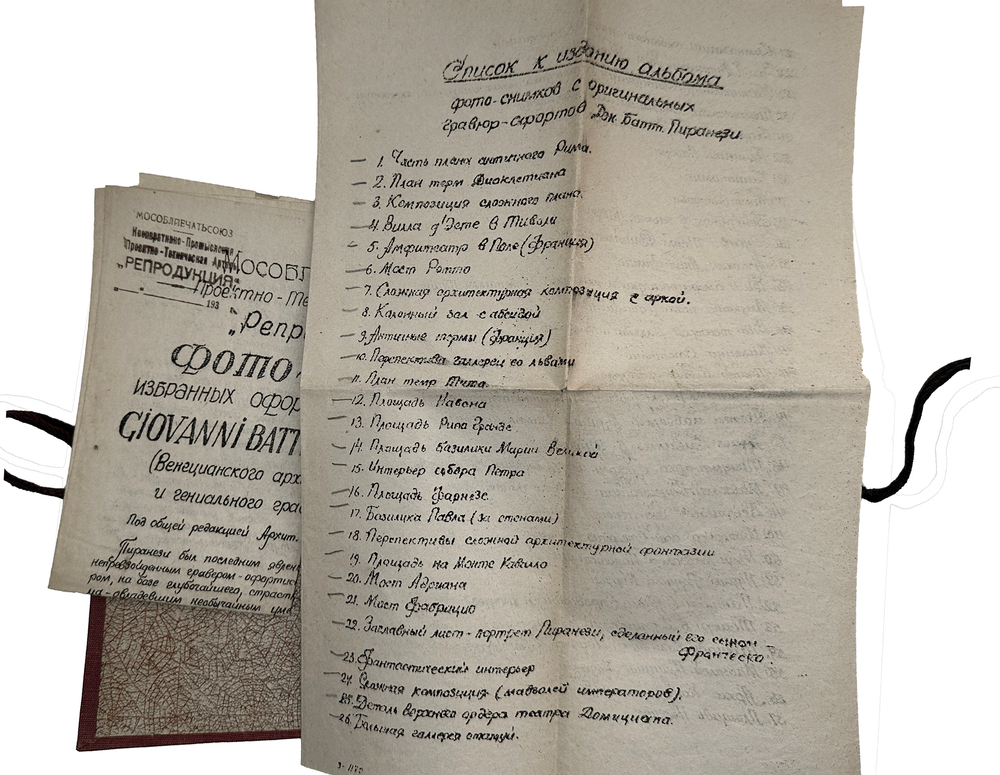 МОСОБЛПЕЧАТЬСОЮЗ
Кооперативно-Промыслов
Проектно-Техническая Артель
„РЕПРОДУКЦИЯ“
193
Мособл
Проектно-Те
„Репр
ФОТО-
избранных офор
GIOVANNI BATT
(Венецианского арх
и гениального гра
Под общей редакцией Архит.
Пиранези был последним явлен
непревзойденным гравером-офортис
ром, на базе глубочайшего, страст
на-овладевшим необычайным
Список к изданию альбома
фото-снимков с оригинальных
гравюр-офортов Дж. Батт. Пиранези.
1. Часть плана античного Рима.
2. План терм Диоклетиана
3. Композиция сложного плана.
4. Вилла д'Эсте в Тиволи
5. Амфитеатр в Поле (Франция)
6. Мост Ротто
7. Сложная архитектурная композиция с аркой.
8. Колонный зал с абсидой
9. Античные термы (Франция)
10. Перспектива галлереи со львами
11. План темр Тита.
12. Площадь Навона
13. Площадь Рипа Гранде
14. Площадь базилики Марии Великой
15. Интерьер собора Петра
16. Площадь Фарнезе.
17. Базилика Павла (за стенами)
18. Перспективы сложной архитектурной фантазии
19. Площадь на Монте Кавалло
20. Мост Адриана
21. Мост Фабрицио
22. Заглавный лист-портрет Пиранези, сделанный его сыном
Франческо.
23. Фантастический интерьер
24. Сложная композиция (мавзолей императоров).
25. Деталь верхнего ордера театра Домициана.
26. Большая галлерея статуй.